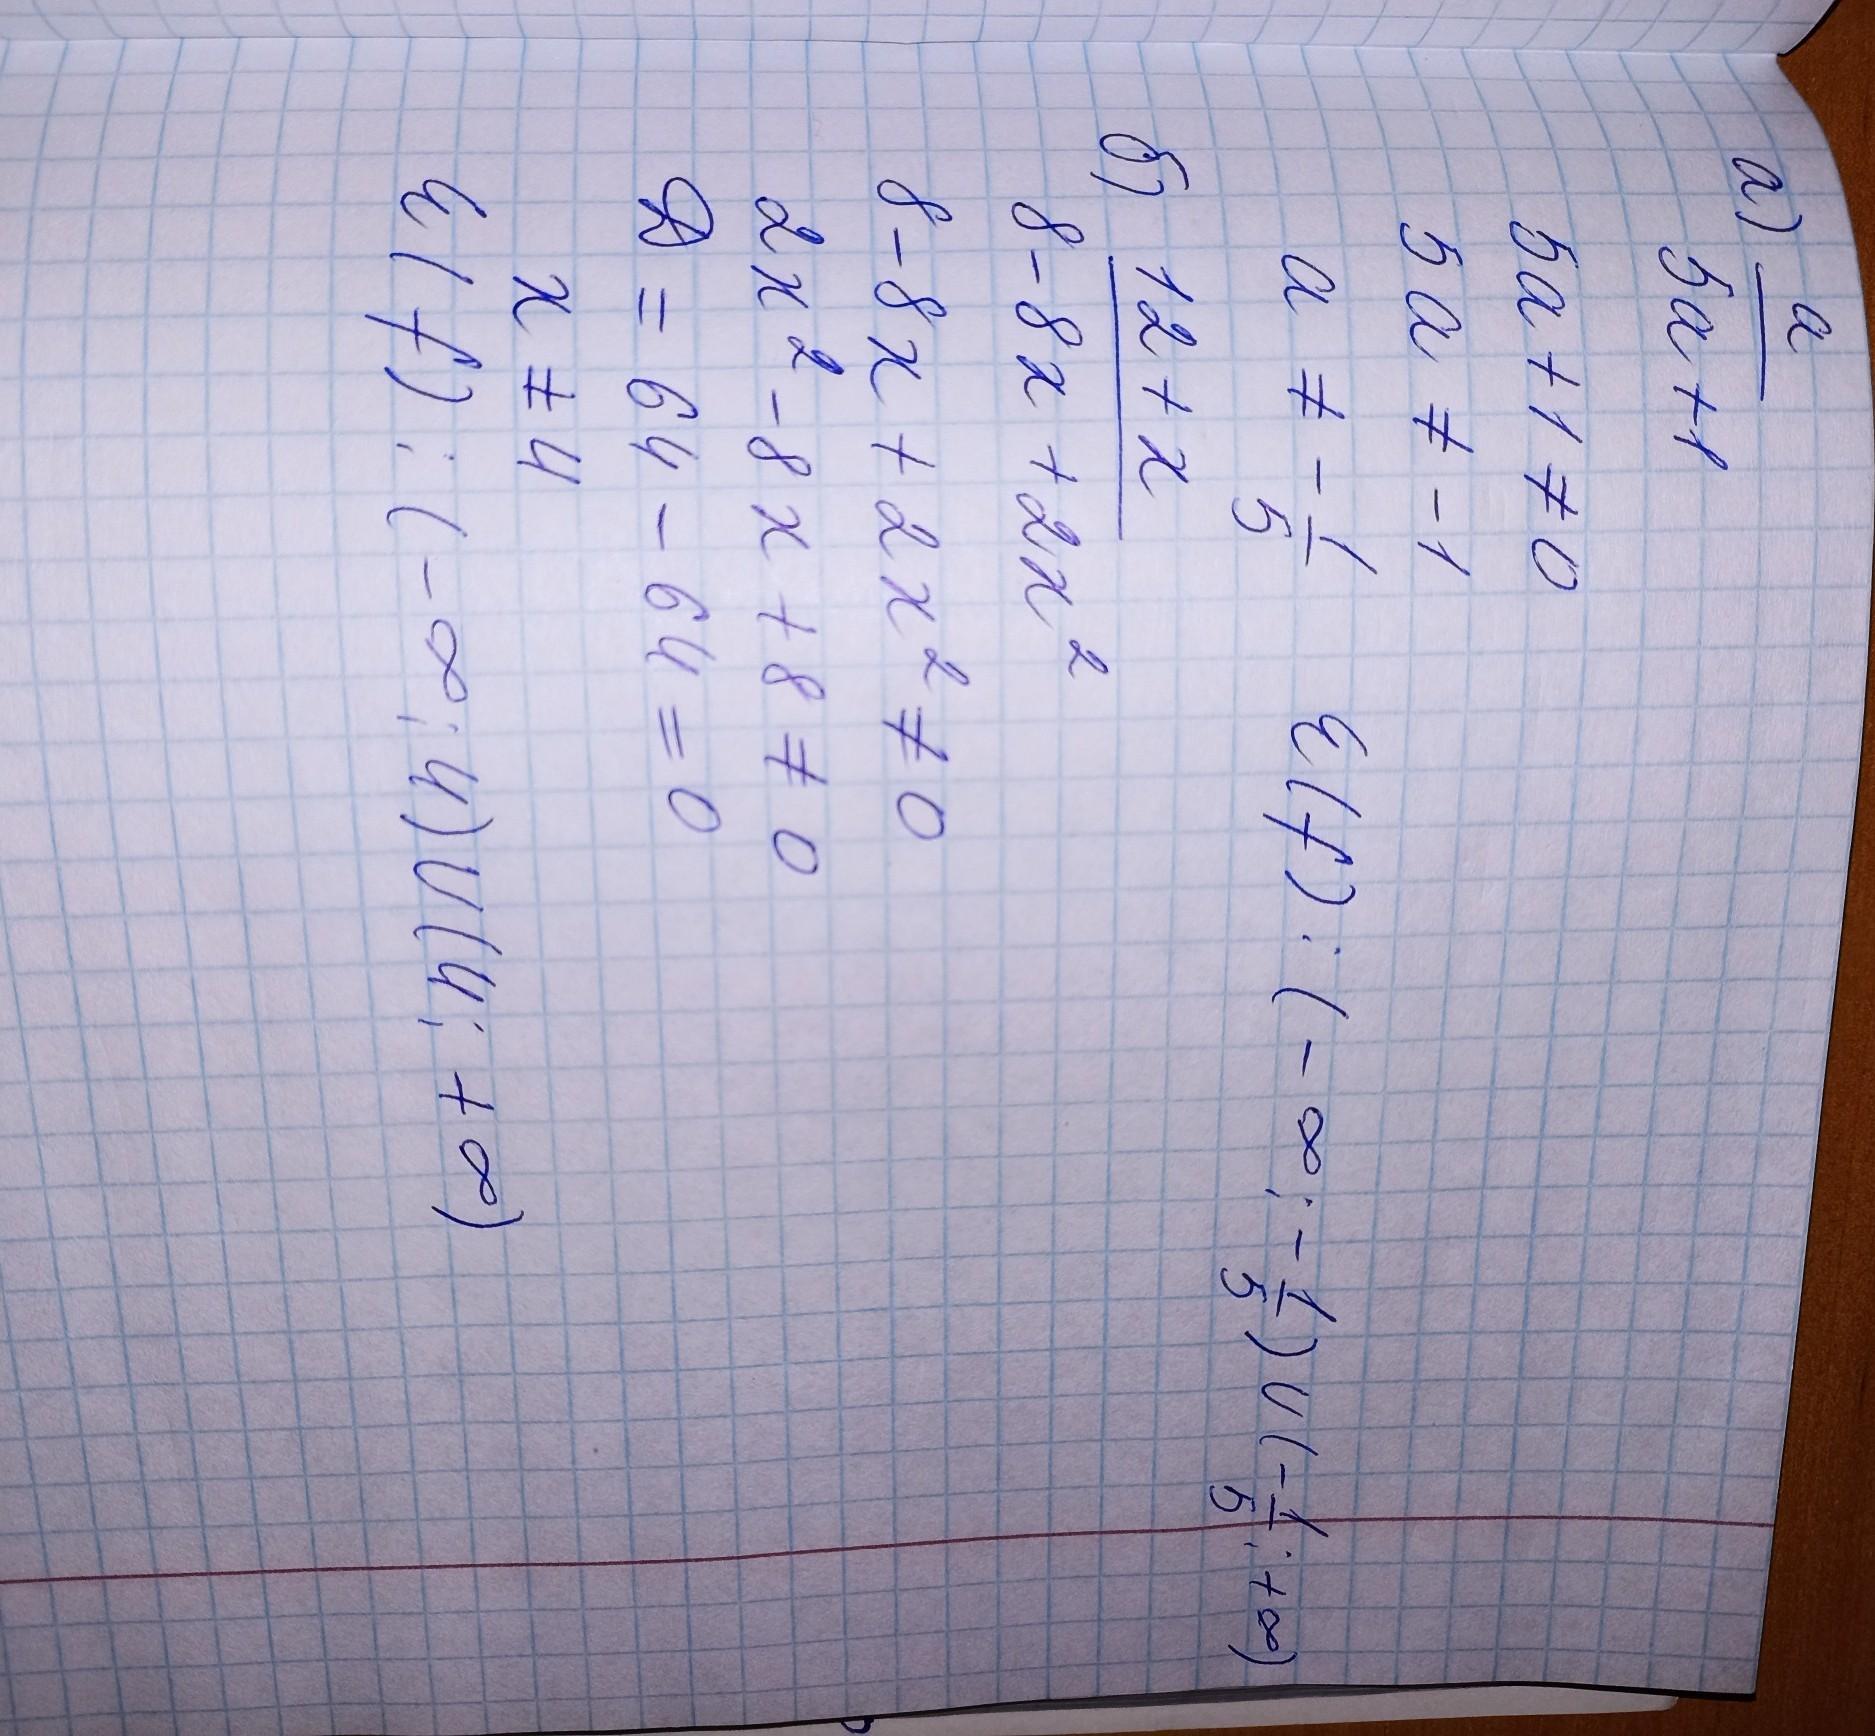 а) a
5a+1
5a+1≠0
5a≠-1
a≠-1/5 E(f):(-∞;-1/5)U(-1/5;+∞)
б) 12+x
8-8x+2x²
8-8x+2x²≠0
2x²-8x+8≠0
D=64-64=0
x≠4
E(f):(-∞;4)U(4;+∞)